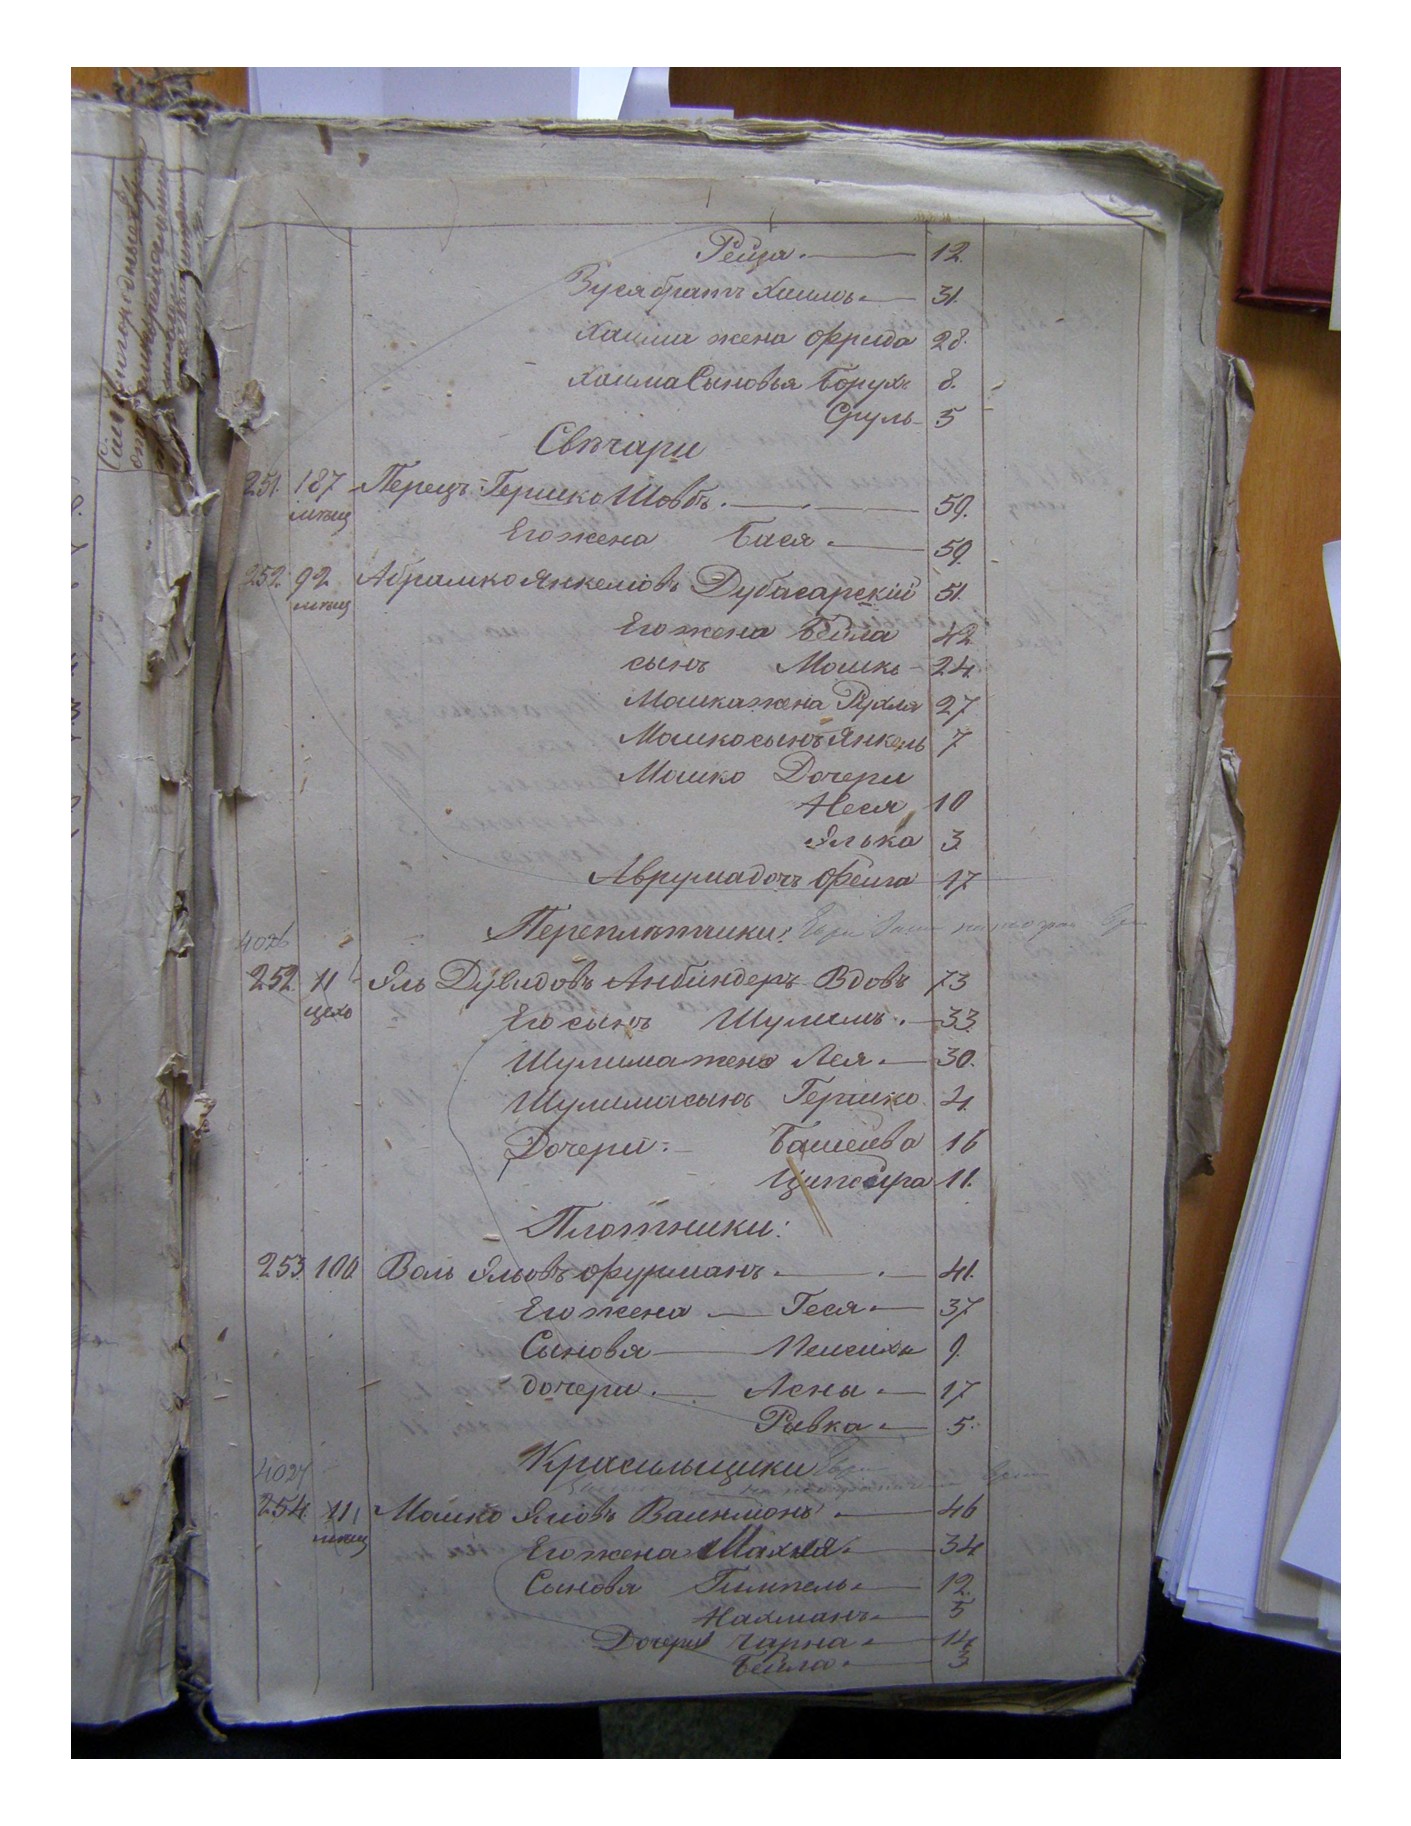 Рейза 12.
Зуся братъ Хаимъ 31
Хаима жена Фрида 28.
Хаима Сыновья Борухъ 8.
Сруль 5
Свѣчари
251. 187 Перецъ Гершко Шовбъ. 59.
мѣщ
Его жена Бася 59.
252. 92 Абрамко Янкелювъ Дубасарскій 51.
мѣщ
Его жена Бейла 42
сынъ Мошко 24.
Мошка жена Рухля 27
Мошко сынъ Янкель 7
Мошко Дочери
Неся 10
Элька 3.
Аврума дочь Фейга 17
Переплетчики:
4026
252. 11 Эль Дувидовъ Анбиндеръ Вдовъ 73
цехо
Его сынъ Шулимъ. 33.
Шулима жена Лея 30.
Шулима сынъ Гершко 4.
Дочери: Башейва 16
Ципойра 11.
Плотники:
253. 100 Воль Эльовъ Фурманъ 41.
Его жена Геся 37
Сыновя Пейсихъ 9.
дочери. Асны 17
Ривка 5.
Красильщики
4027
254. 11 Мошко Яловъ 46
мѣщ
Его жена Махля 34
Сыновя Гимпель 12.
Нахманъ 5
Дочери Чарна 14
Бейла 3.